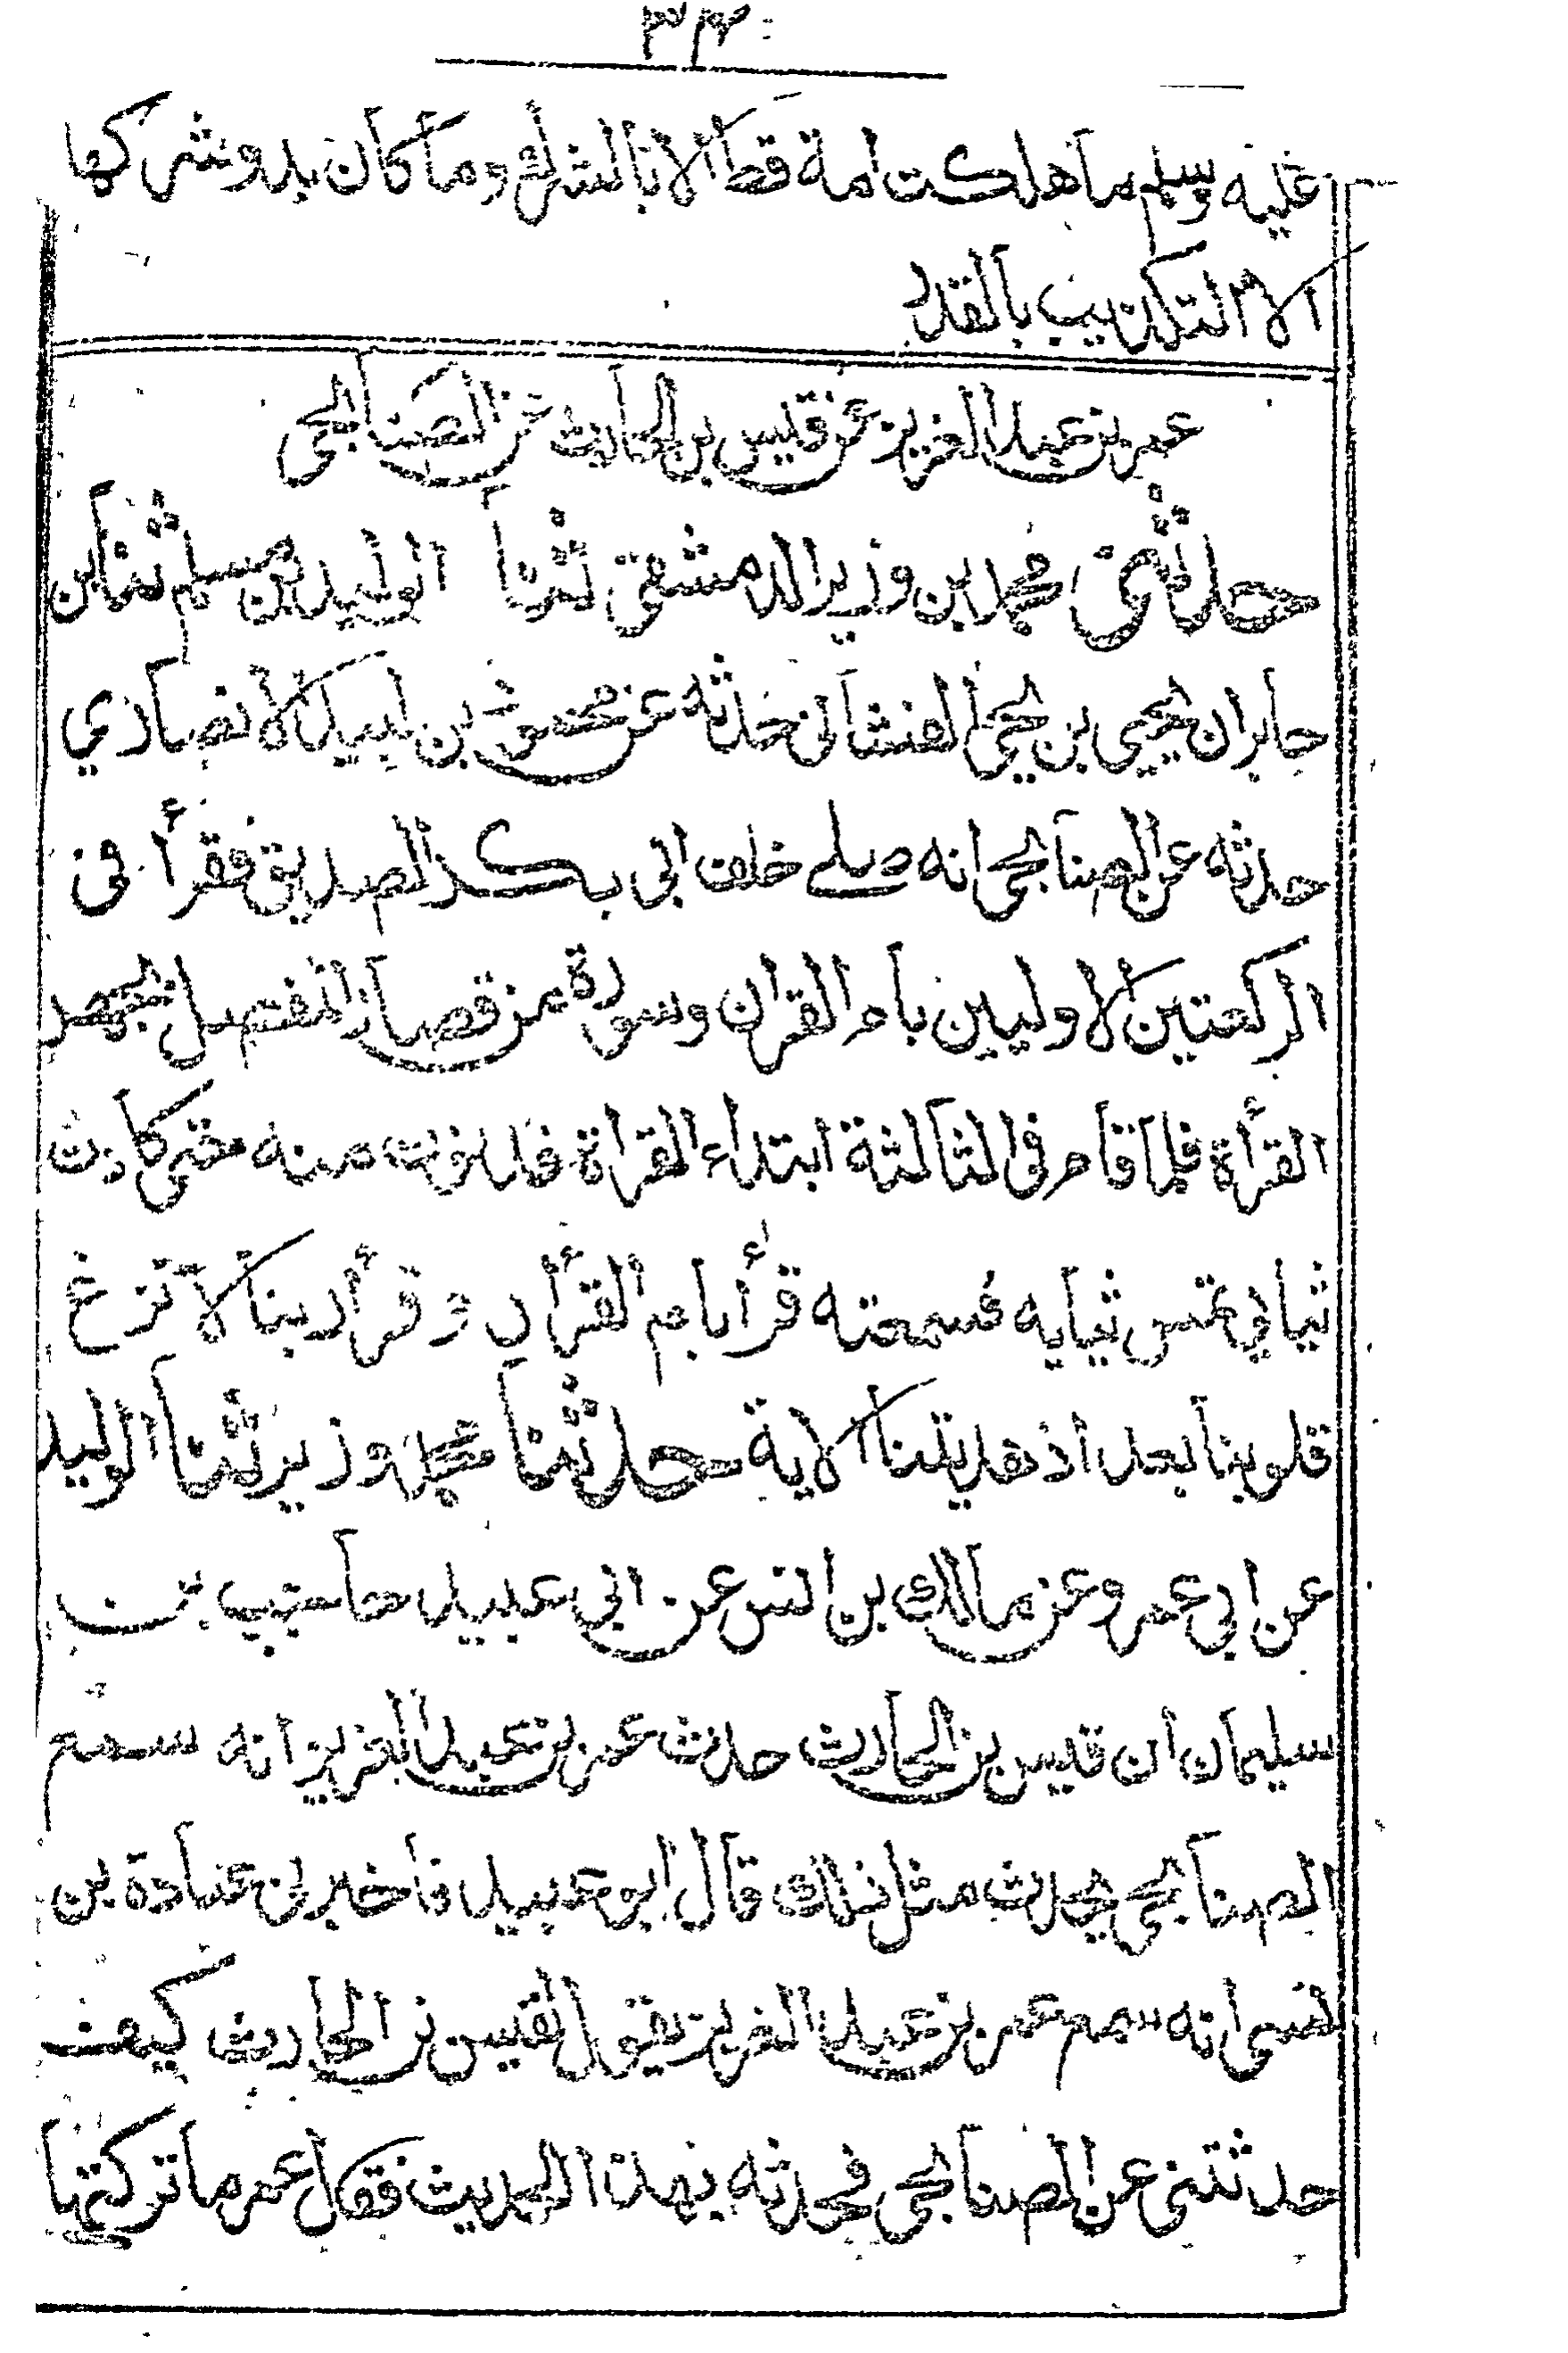 عليه وسلم ما هلكت امة قط الا بالشرك وما كان بدو شركها
الا التكذيب بالقدر
عمر بن عبد العزيز عن قيس بن الحارث عن الصنابحي
حدثني محمد بن وزير الدمشقي ثنا الوليد بن مسلم ثنا ابن
جابر ان يحيى بن يحيى الغسانى حدثه عن محمود بن لبيد الانصاري
حدثه عن الصنابحى انه صلے خلف ابى بكر الصديق فقرأ فى
الركعتين الاوليين بام القران وسورة من قصار المفصل يجهر
القرأة فلما قام فى الثالثة ابتداء القراة فدنوت منه حتى كادت
ثيابي تمس ثيابه فسمعته قرأ بام القرأن وقرأ ربنا لا تزغ
قلوبنا بعد اذ هديتنا الاية حدثنا محمد وزير ثنا الوليد
عن ابي عمرو عن مالك بن انس عن ابى عبيد حاجب بن
سليمان ان قيس بن الحارث حدث عمر بن عبد العزيز انه سمع
الصنابحى يحدث مثل ذلك قال ابو عبيد فاخبرنى عبادة بن
نسى انه سمع عمر بن عبد العزيز يقول لقيس بن الحارث كيف
حدثتنى عن الصنابحى فحدثه بهذا الحديث فقال عمر ما تركتها